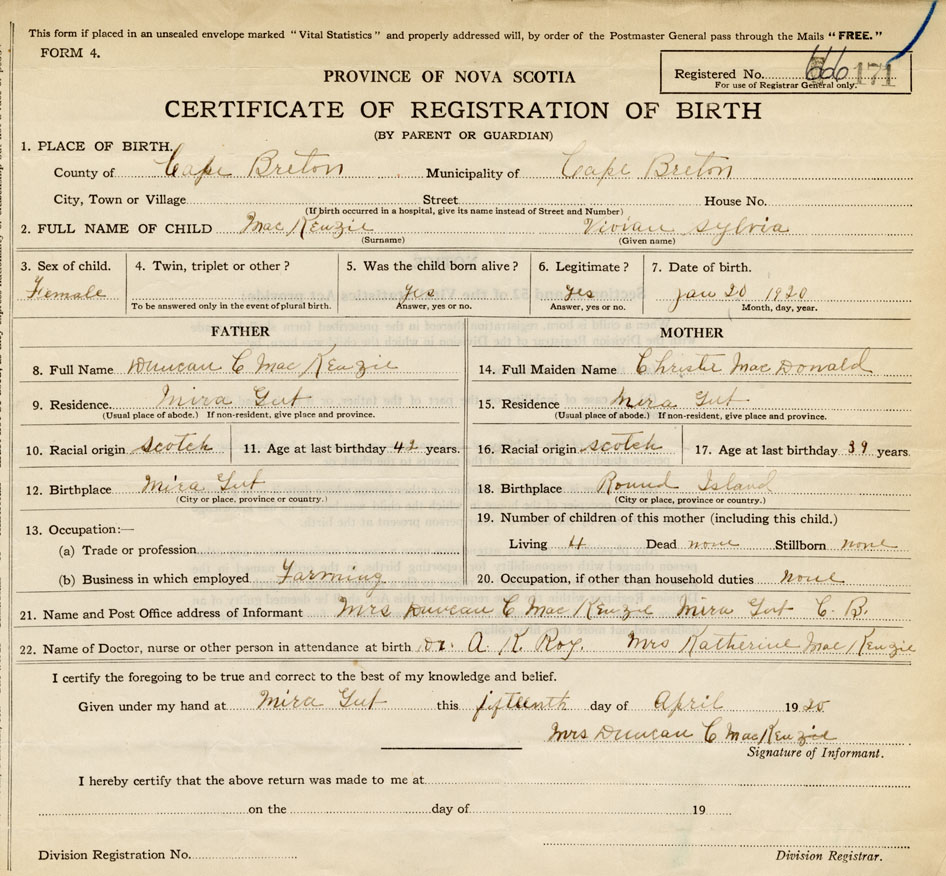 This form if placed in an unsealed envelope marked "Vital Statistics" and properly addressed will, by order of the Postmaster General pass through the Mails "FREE."
FORM 4.
Registered No. 666 171
For use of Registrar General only.
PROVINCE OF NOVA SCOTIA
CERTIFICATE OF REGISTRATION OF BIRTH
(BY PARENT OR GUARDIAN)
1. PLACE OF BIRTH.
County of Cape Breton Municipality of Cape Breton
City, Town or Village Street House No.
(If birth occurred in a hospital, give its name instead of Street and Number)
2. FULL NAME OF CHILD MacKenzie Vivian Sylvia
(Surname) (Given name)
3. Sex of child. 4. Twin, triplet or other? 5. Was the child born alive? 6. Legitimate? 7. Date of birth.
Female yes yes Jan 20 1920
To be answered only in the event of plural birth. Answer, yes or no. Answer, yes or no. Month, day, year.
FATHER MOTHER
8. Full Name Duncan C MacKenzie 14. Full Maiden Name Christie MacDonald
9. Residence. Mira Gut 15. Residence Mira Gut
(Usual place of abode.) If non-resident, give place and province. (Usual place of abode.) If non-resident, give place and province.
10. Racial origin Scotch 11. Age at last birthday 42 years. 16. Racial origin Scotch 17. Age at last birthday 39 years.
12. Birthplace Mira Gut 18. Birthplace Round Island
(City or place, province or country.) (City or place, province or country.)
13. Occupation:— 19. Number of children of this mother (including this child.)
(a) Trade or profession Living 4 Dead none Stillborn none
(b) Business in which employed Farming 20. Occupation, if other than household duties none
21. Name and Post Office address of Informant Mrs Duncan C MacKenzie Mira Gut C. B.
22. Name of Doctor, nurse or other person in attendance at birth Dr. A. K. Roy. Mrs Katherine MacKenzie
I certify the foregoing to be true and correct to the best of my knowledge and belief.
Given under my hand at Mira Gut this fifteenth day of April 1920
Mrs Duncan C MacKenzie
Signature of Informant.
I hereby certify that the above return was made to me at
on the day of 19
Division Registration No.
Division Registrar.